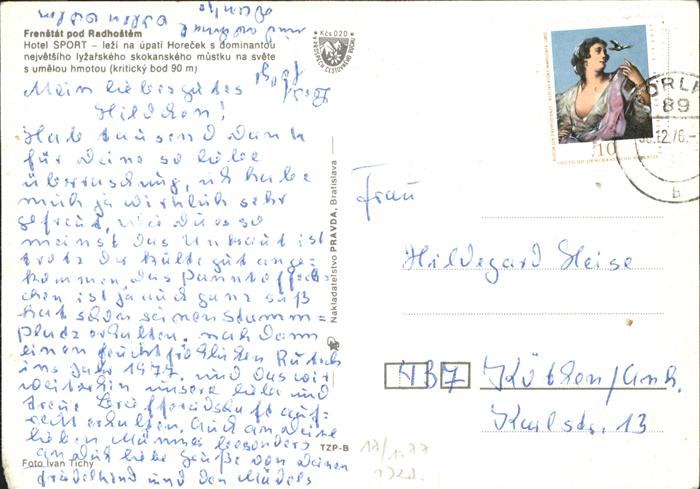 Frenštát pod Radhoštěm
Hotel SPORT – leží na úpatí Horeček s dominantou
největšího lyžařského skokanského můstku na světe
s umělou hmotou (kritický bod 90 m)
Kčs 0,20
V PROSPĚCH CESTOVNÉHO RUCHU
Mein liebes gutes
Hildchen!
Hab tausend Dank
für deine so liebe
überraschung, ich habe
mich ja wirklich sehr
gefreut, wie du es so
meinst das Unkraut ist
trotz der Kälte gut ange=
kommen, das Pantoffel=
chen ist ja auch ganz süß
hat schon seinen Stamm=
platz erhalten, nach dann
einen feucht fröhlichen Rutsch
ins Jahr 1977. und das wir
weiterhin unsere liebe und
treue Brieffreundschaft auf=
recht erhalten, auch an deine
lieben Männer besonders
an dich liebe Grüße von deinen
Friedelkind und den Mädels
Foto Ivan Tichý
TZP-B
Nakladateľstvo PRAVDA, Bratislava
10
DEUTSCHE DEMOKRATISCHE REPUBLIK
89
b
Frau
Hildegard Heise
437 Köthen/Anh.
Karlstr. 13
17/1.77